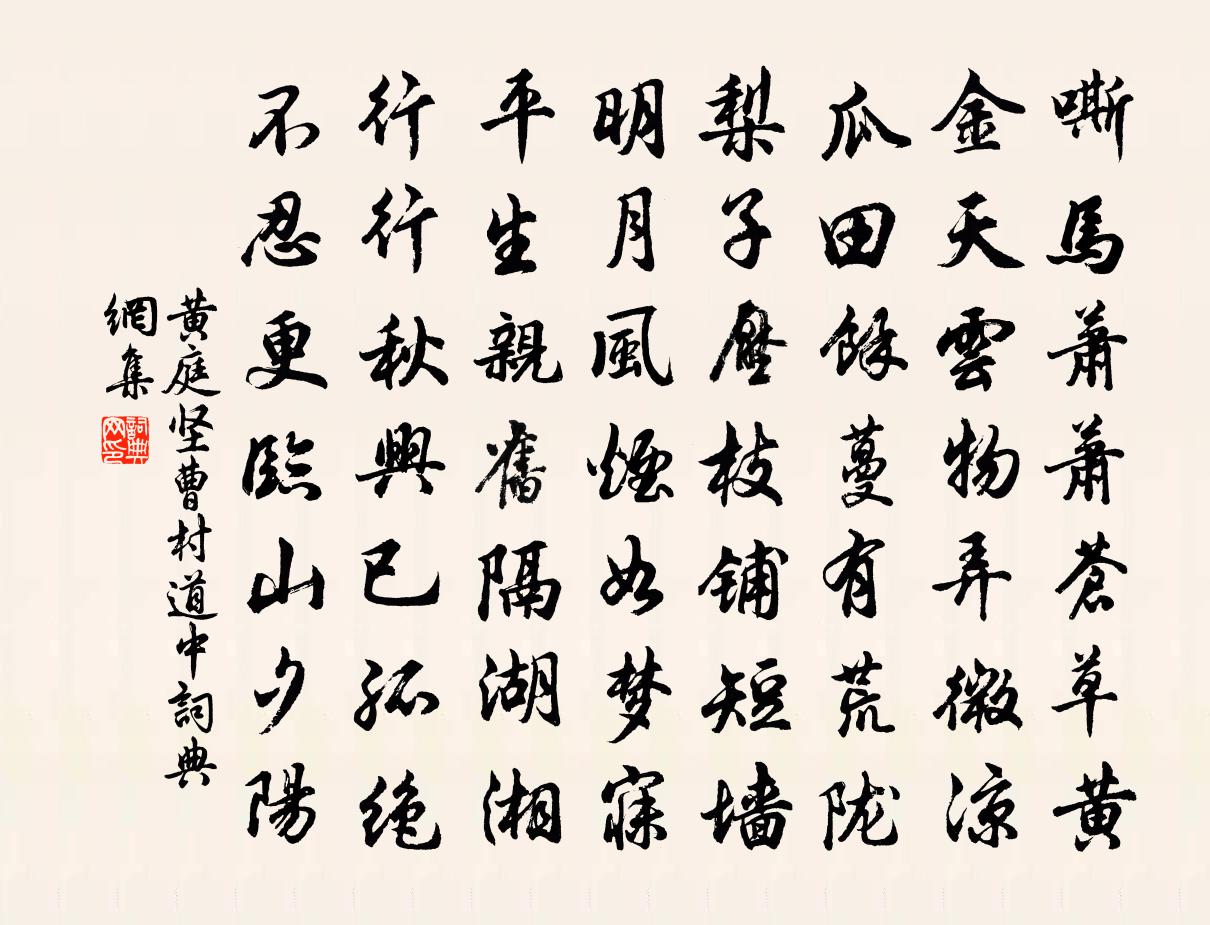 嘶馬蕭蕭蒼草黄
金天雲物弄微涼
瓜田餘蔓有荒陇
梨子壓枝铺短墙
明月風煙如梦寐
平生親舊隔湖湘
行行秋興已孤绝
不忍更臨山夕陽
黄庭坚曹村道中詞典
網集
詞典
网印